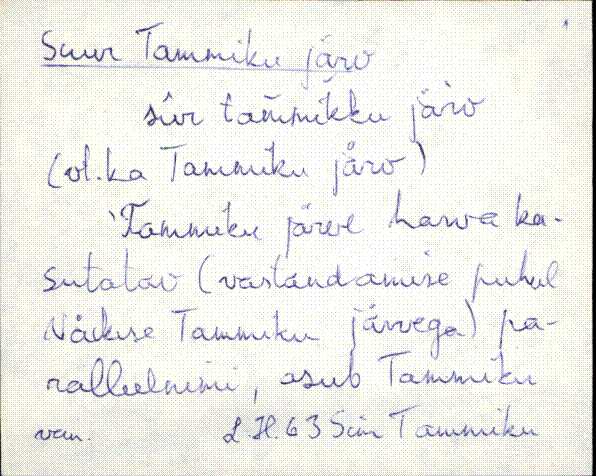 Suur Tammiku järv
sūr tam̄mikku järv
(vt. ka Tammiku järv)
Tammiku järve harva ka-
sutatav (vastandamise puhul
Väikse Tammiku järvega) pa-
ralleelnimi, asub Tammiku
L.H. 63 Tammiku